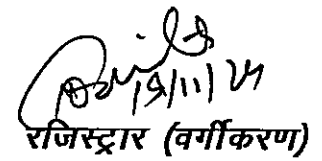 19/11/24
रजिस्ट्रार (वर्गीकरण)